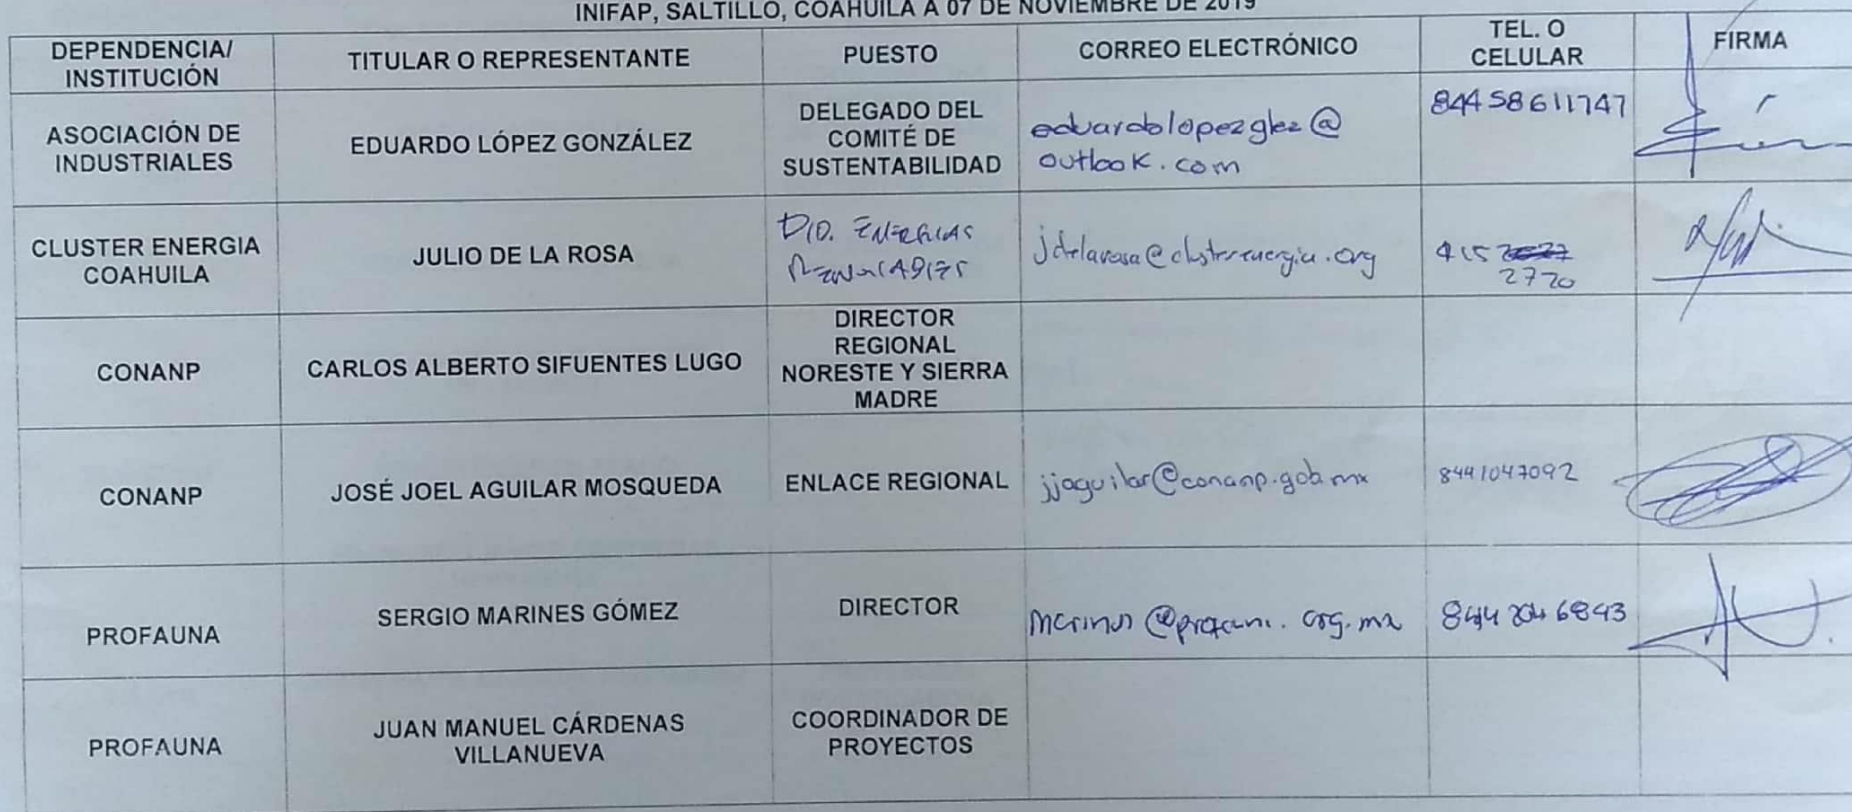 INIFAP, SALTILLO, COAHUILA A 07 DE NOVIEMBRE DE 2019
DEPENDENCIA/
INSTITUCIÓN
TITULAR O REPRESENTANTE
PUESTO
CORREO ELECTRÓNICO
TEL. O
CELULAR
FIRMA
ASOCIACIÓN DE
INDUSTRIALES
EDUARDO LÓPEZ GONZÁLEZ
DELEGADO DEL
COMITÉ DE
SUSTENTABILIDAD
eduardolopezglez@
outlook.com
84458611747
CLUSTER ENERGIA
COAHUILA
JULIO DE LA ROSA
ENERGIAS
jdelarosa@clusterenergia.org
415
2720
CONANP
CARLOS ALBERTO SIFUENTES LUGO
DIRECTOR
REGIONAL
NORESTE Y SIERRA
MADRE
CONANP
JOSÉ JOEL AGUILAR MOSQUEDA
ENLACE REGIONAL
jjaguilar@conanp.gob.mx
8441047092
PROFAUNA
SERGIO MARINES GÓMEZ
DIRECTOR
844 6843
PROFAUNA
JUAN MANUEL CÁRDENAS
VILLANUEVA
COORDINADOR DE
PROYECTOS